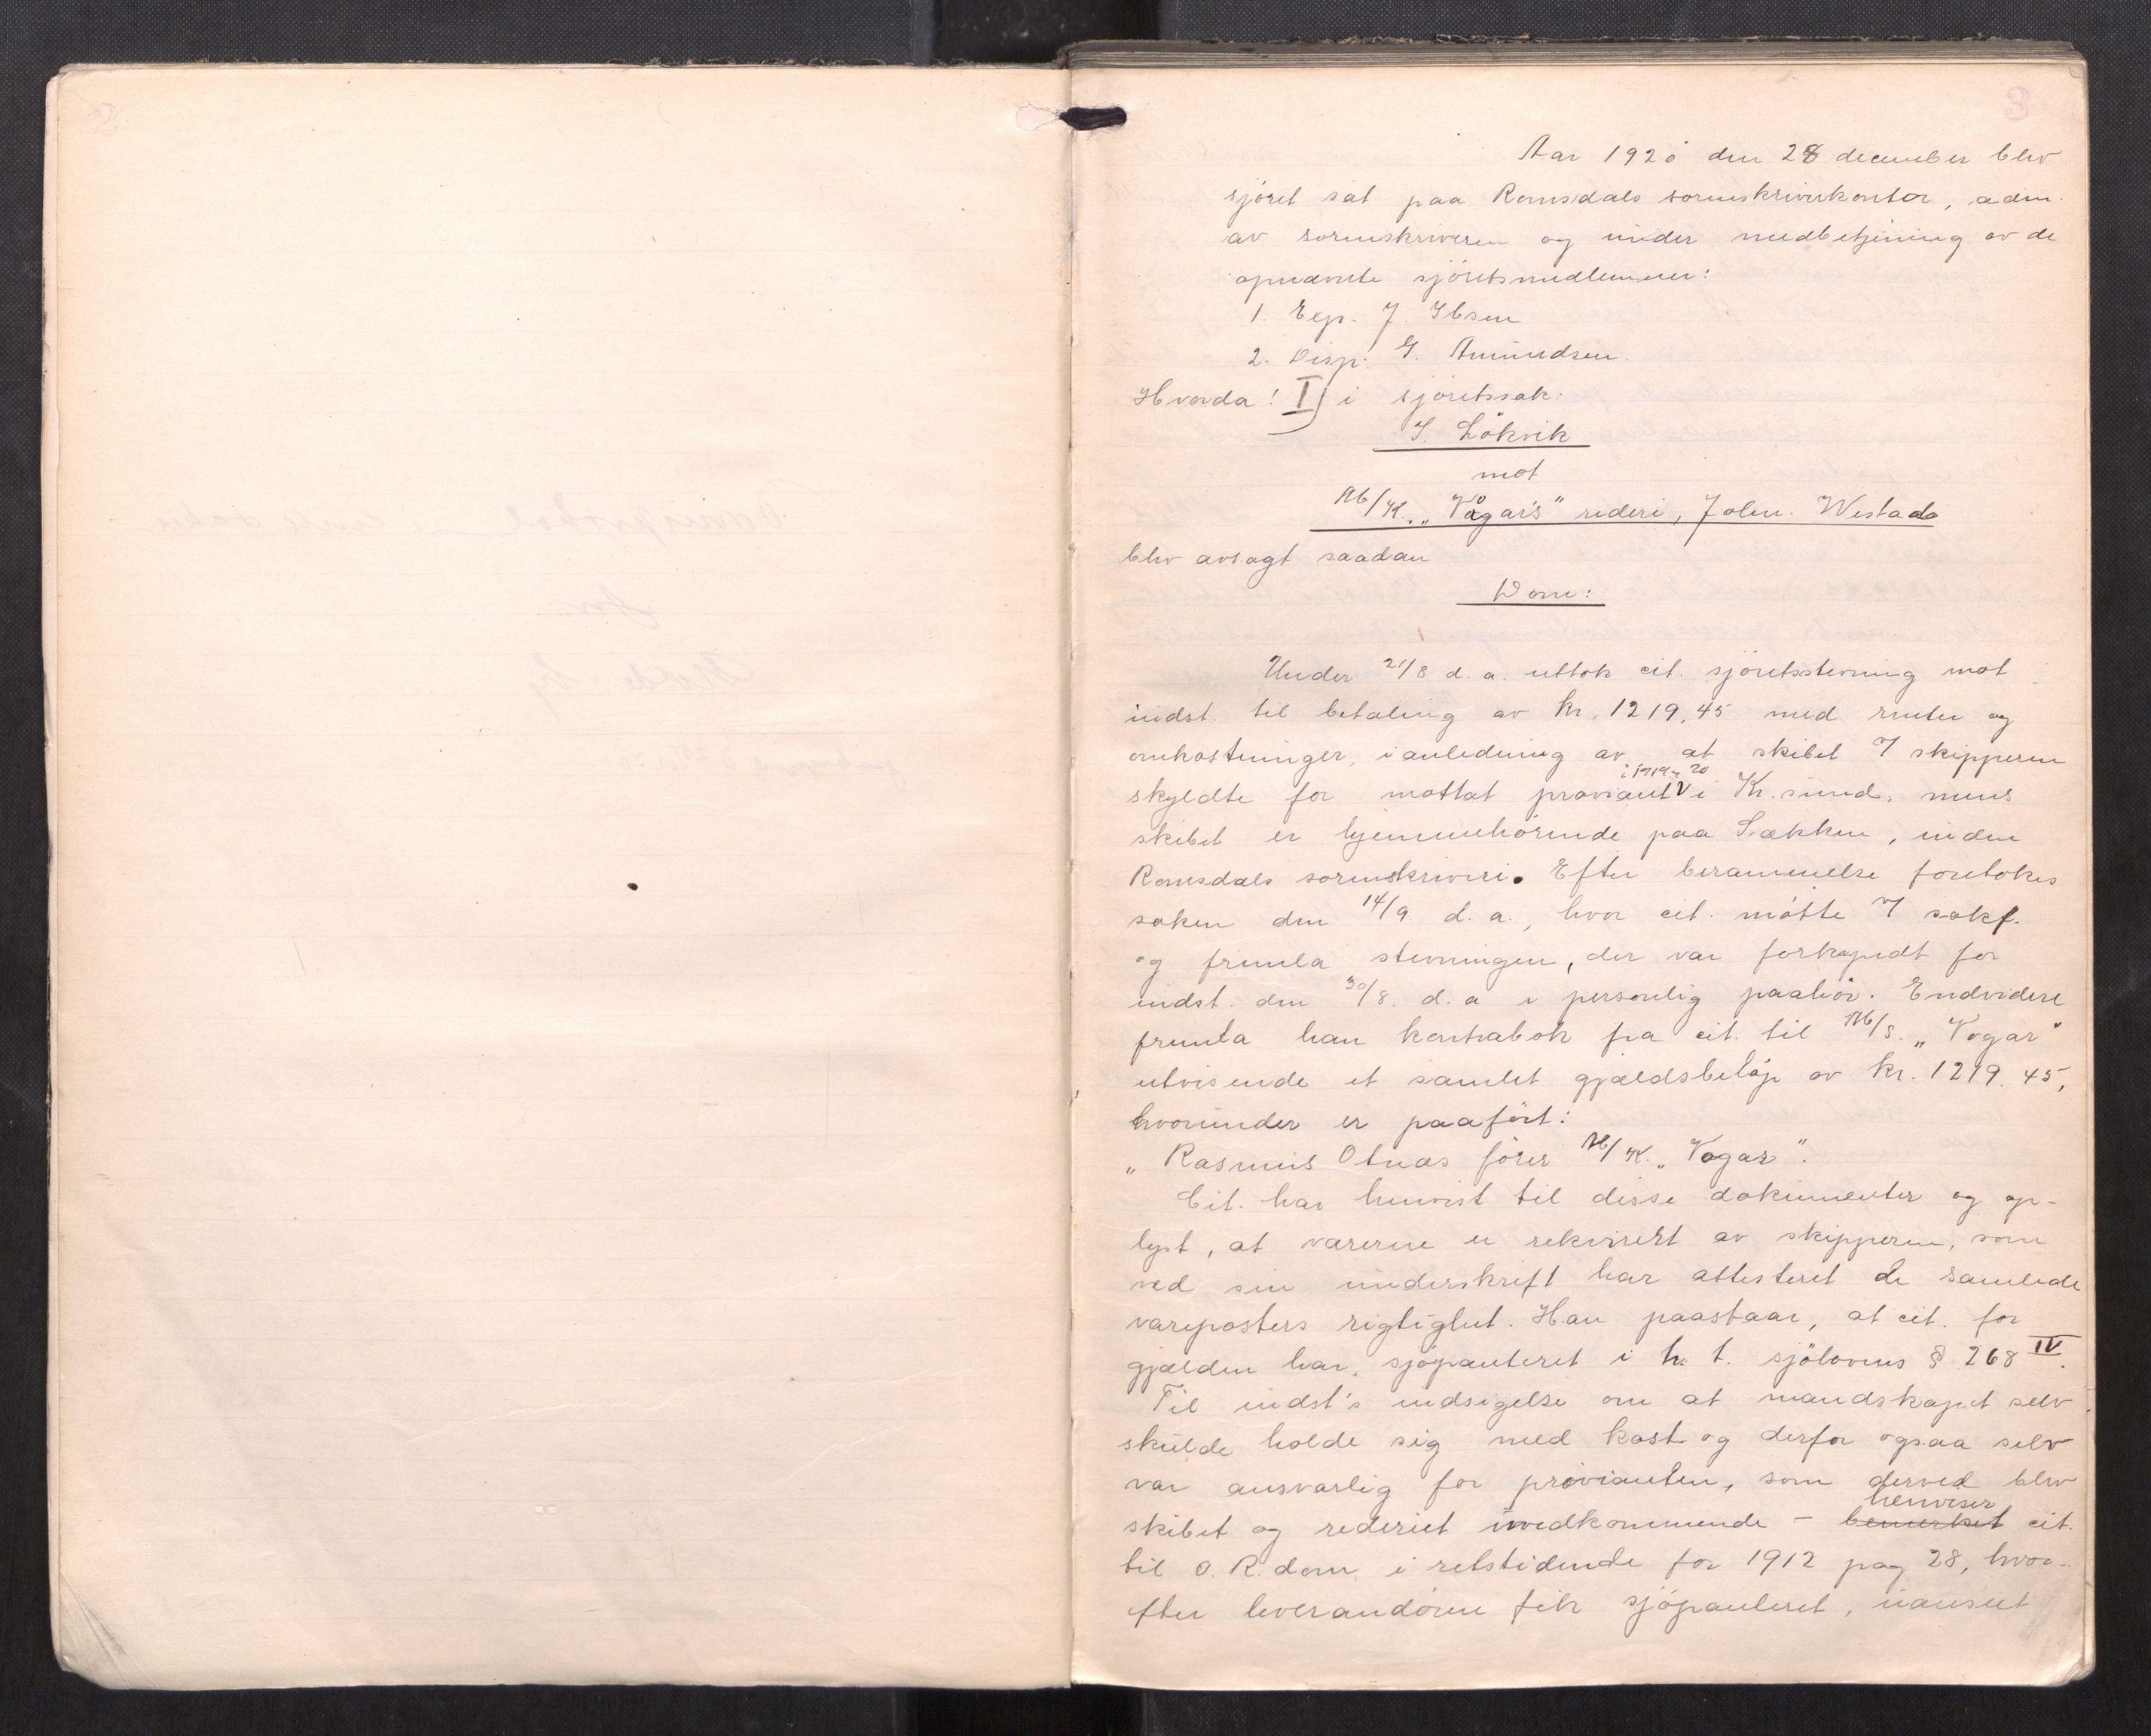 3
Aar 1920 den 28 december blev
sjöret sat paa Romsdals sorenskriverkontor, adm.
av sorenskriveren og under medbetjening av de
opnævnte sjöretsmedlemmer:
1. Exp. J. Ibsen
2. Disp. G. Amundsen.
Hvorda: I) i sjöretssak:
I. Lökvik
mot
M/K. „Vågar's" rederi, John. Westad
blev avsagt saadan
Dom:
Under 21/8 d. a. uttok cit. sjöretsstevning mot
indst. til betaling av kr. 1219,45 med renter og
omkostninger, i anledning av at skibet v/ skipperen
i 1919-20
skyldte for mottat proviant V i Kr.sund, mens
skibet er hjemmehörende paa Sækken, inden
Romsdals sorenskriveri. Efter berammelse foretokes
saken den 14/9 d. a., hvor cit. mötte v/ sakf.
og fremla stevningen, der var forkyndt for
indst. den 30/8. d. a i personlig paahör. Endvidere
fremla han kontrabok fra cit. til M/S. „Vogar"
utvisende et samlet gjældsbelöp av kr. 1219.45,
hvorunder er paafört:
„Rasmus Otnæs förer M/K. „Vogar".
Cit. har henvist til disse dokumenter og op-
lyst, at varerne er rekvirert av skipperen, som
ved sin underskrift har attesteret de samlede
vareposters rigtighet. Han paastaar, at cit. for
gjælden har sjöpanteret i h. t. sjölovens § 268 IV.
Til indst's indsigelse om at mandskapet selv
skulde holde sig med kost og derfor ogsaa selv
var ansvarlig for provianten, som derved blev
henviser
skibet og rederiet uvedkommende - bemerket cit.
til O. R. dom i retstidende for 1912 pag 28, hvor-
efter leverandören fik sjöpanteret, uanset